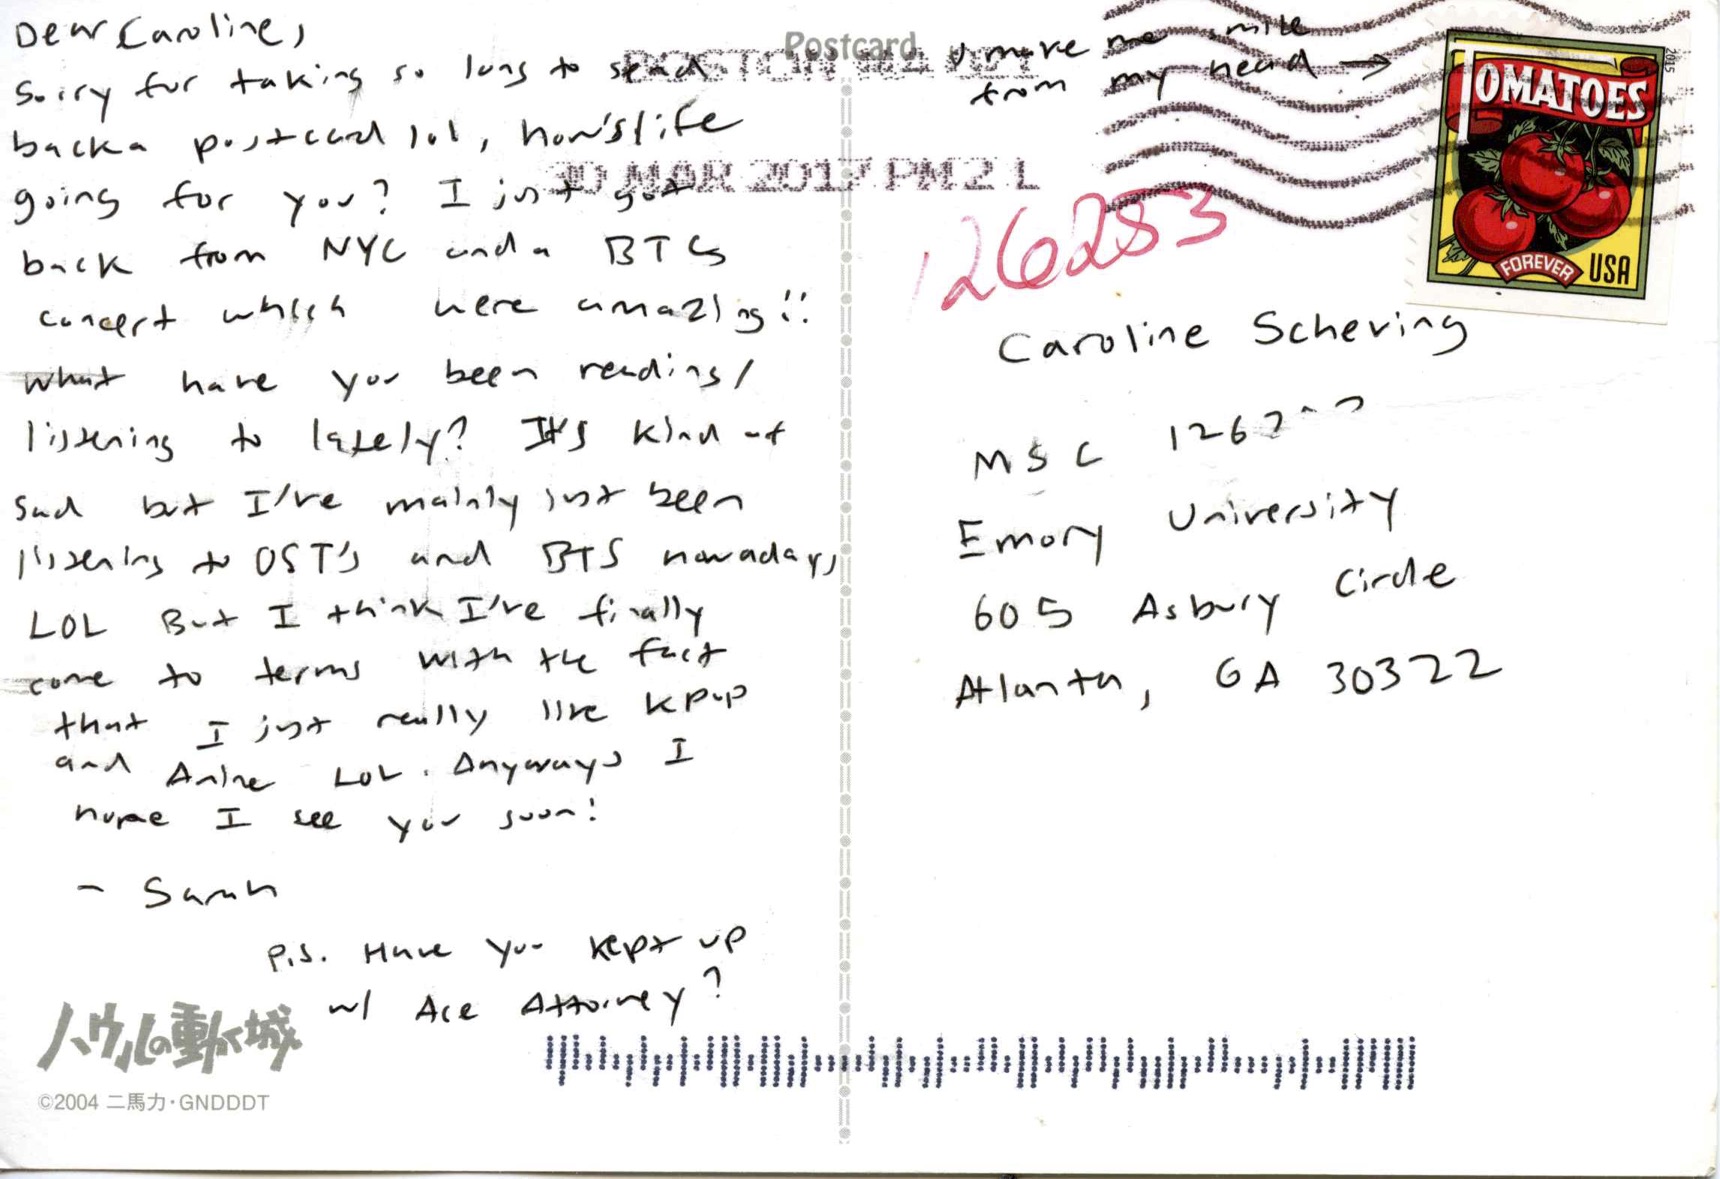 Dear Caroline,
Sorry for taking so long to send
back a postcard lol, how's life
going for you? I just got
back from NYC and a BTS
concert which were amazing!!
What have you been reading/
listening to lately? It's kind of
sad but I've mainly just been
listening to OST's and BTS nowadays
LOL But I think I've finally
come to terms with the fact
that I just really like Kpop
and Anime LOL. Anyways I
hope I see you soon!
- Sarah
P.S. Have you kept up
w/ Ace Attorney?
ハウルの動く城
©2004 二馬力・GNDDDT
Postcard
BOSTON MA
30 MAR 2017 PM 2 L
u make me smile
from my head →
TOMATOES
2015
FOREVER USA
126283
Caroline Schering
MSC 126
Emory University
605 Asbury Circle
Atlanta, GA 30322